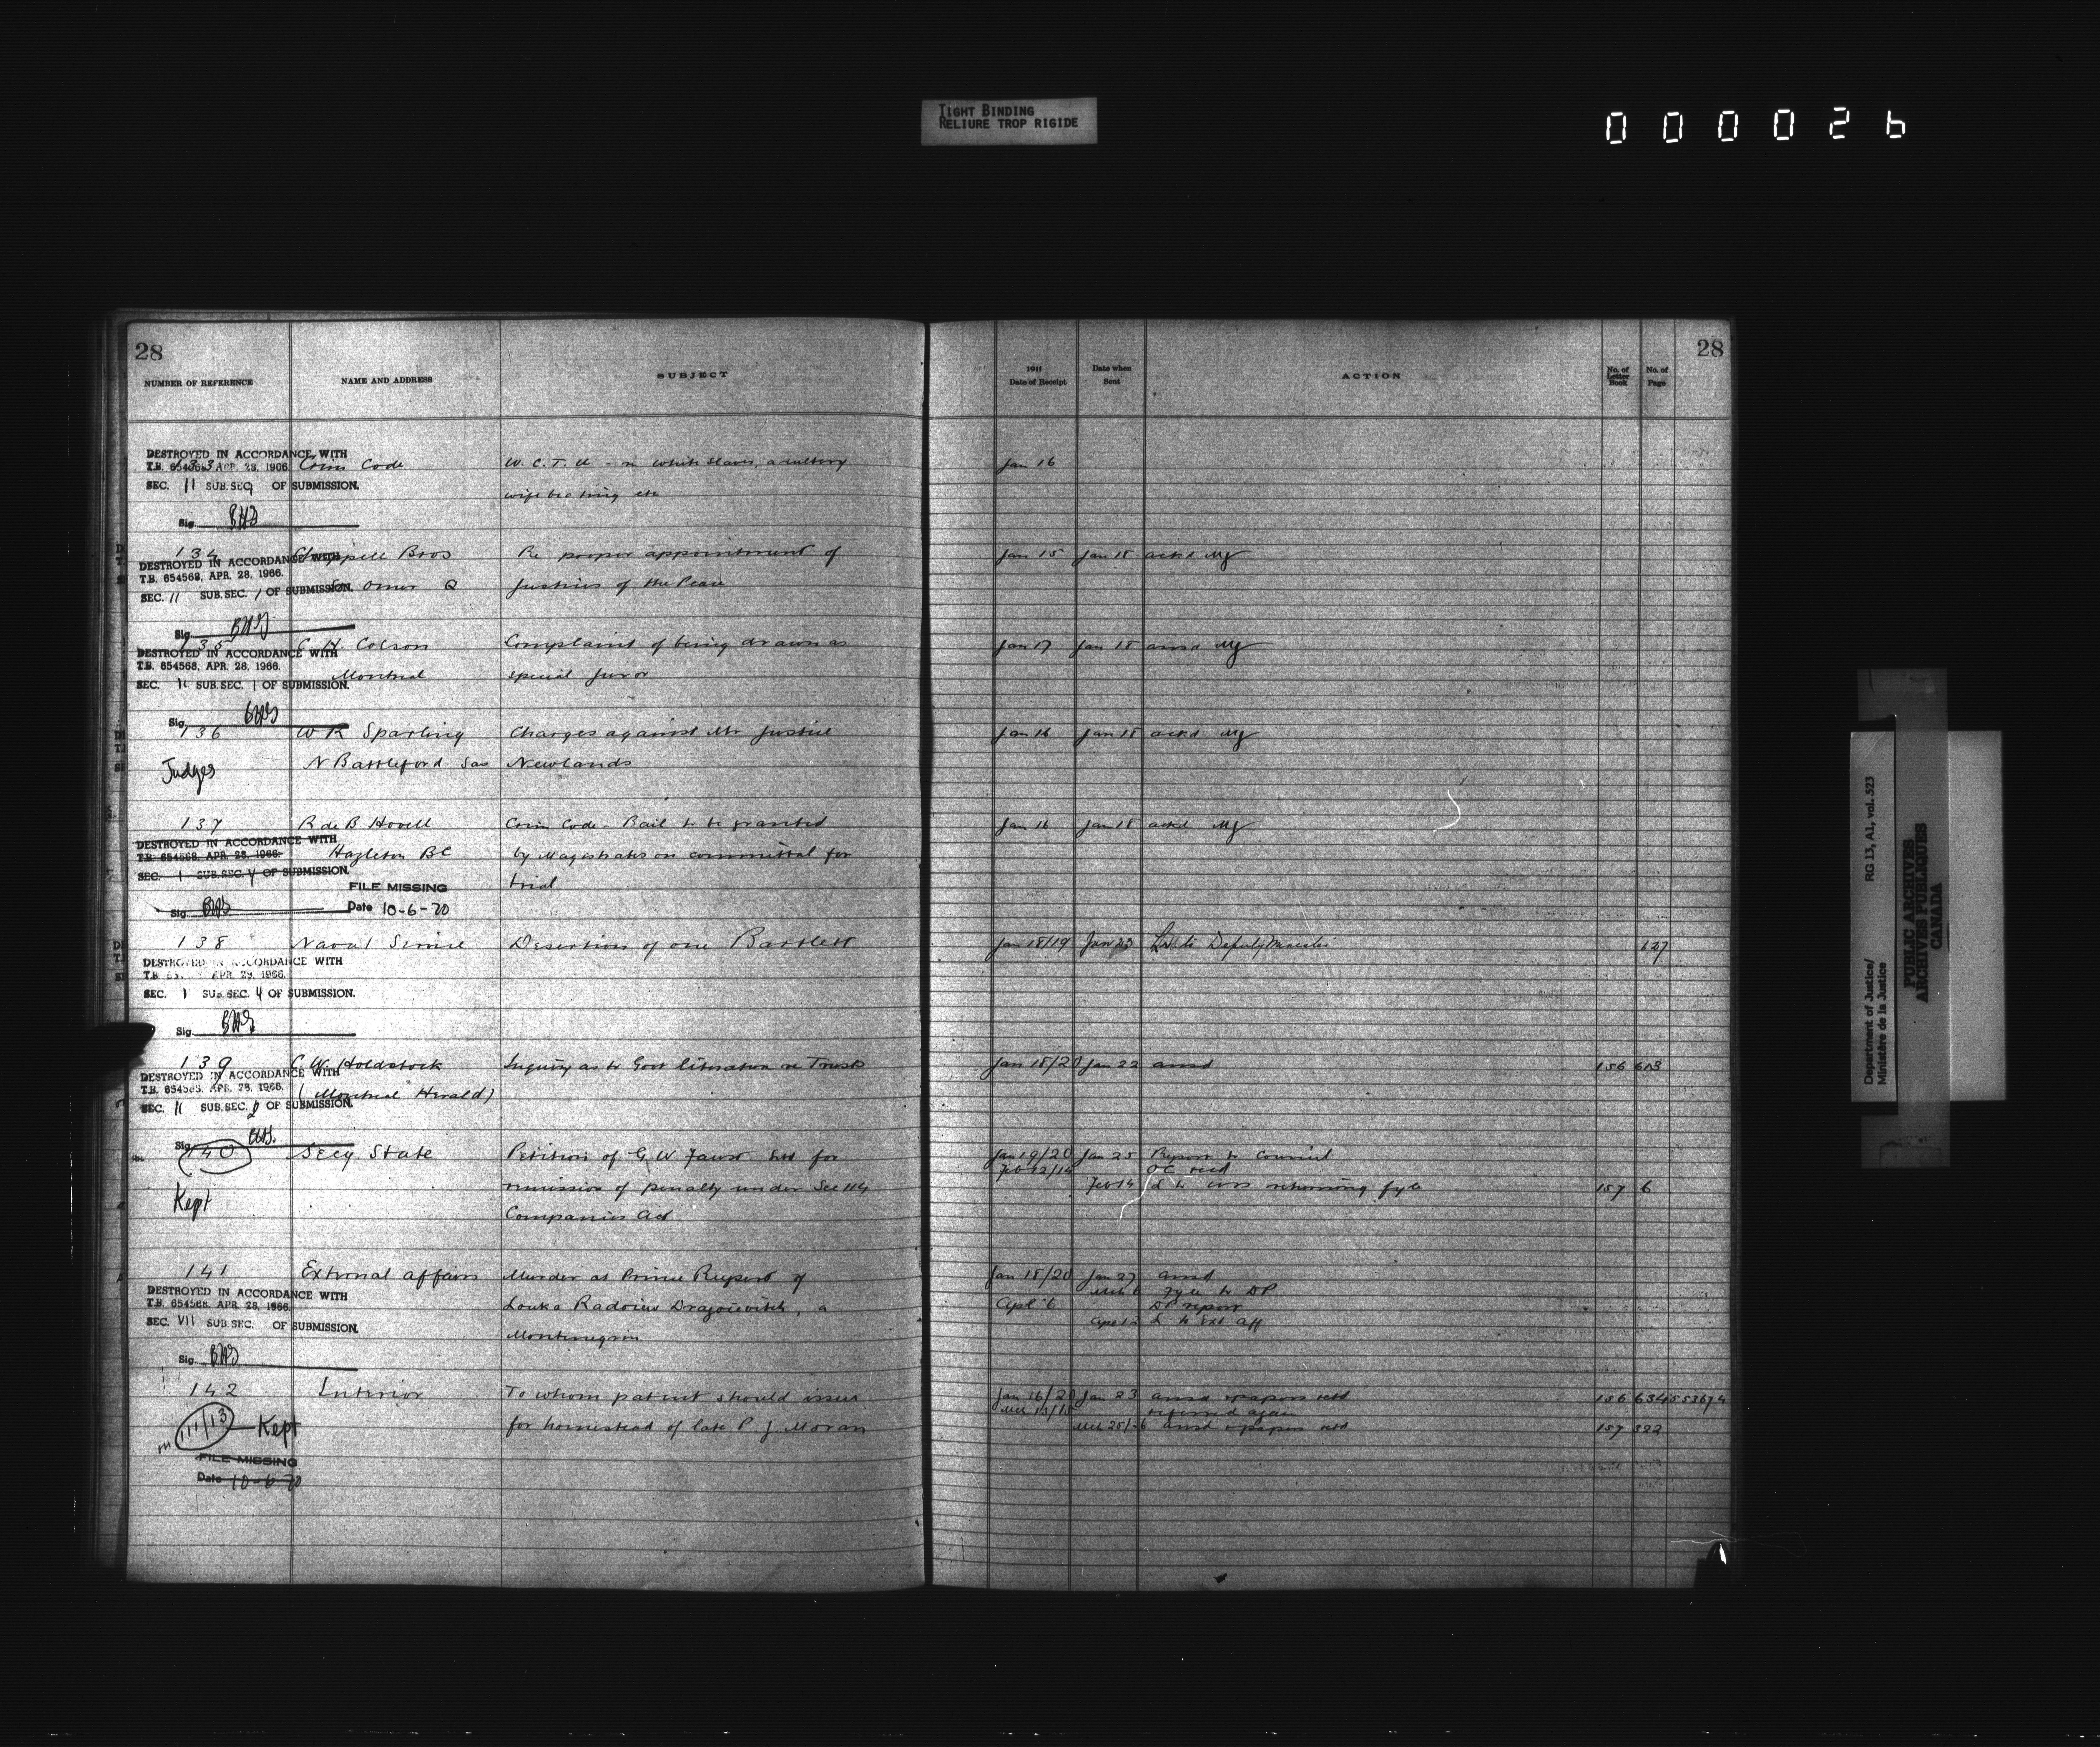 TIGHT BINDING
RELIURE TROP RIGIDE
000026
28
NUMBER OF REFERENCE NAME AND ADDRESS SUBJECT
133 Crim Code W. C. T. U - re white slaves, adultery
wife beating etc
DESTROYED IN ACCORDANCE WITH
T.B. 654568 APR. 28, 1966
SEC. 11 SUB. SEC 9 OF SUBMISSION.
Sig.
134 Chappell Bros Re proper appointment of
St Omer Q Justices of the Peace
DESTROYED IN ACCORDANCE WITH
T.B. 654568, APR. 28, 1966.
SEC. 11 SUB. SEC. 1 OF SUBMISSION.
Sig.
135 C H Colson Complaint of being drawn as
Montreal special juror
DESTROYED IN ACCORDANCE WITH
T.B. 654568, APR. 28, 1966.
SEC. 11 SUB. SEC. 1 OF SUBMISSION.
Sig.
136 W R Sparling Charges against Mr Justice
Judges N Battleford Sas Newlands
137 R de B Hovell Crim Code - Bail to be granted
Hazleton BC by Magistrates on committal for
trial
DESTROYED IN ACCORDANCE WITH
T.B. 654568, APR. 28, 1966.
SEC. 1 SUB. SEC. 4 OF SUBMISSION.
FILE MISSING
Sig. Date 10-6-70
138 Naval Service Desertion of one Bartlett
DESTROYED IN ACCORDANCE WITH
T.B. APR. 28, 1966.
SEC. 1 SUB. SEC. 4 OF SUBMISSION.
Sig.
139 C W Holdstock Inquiry as to Govt literature on Trusts
(Montreal Herald)
DESTROYED IN ACCORDANCE WITH
T.B. 654568, APR. 28, 1966.
SEC. 11 SUB. SEC. 2 OF SUBMISSION.
Sig.
140 Secy State Petition of G W Faust for
Kept remission of penalty under Sec 114
Companies Act
141 External Affairs Murder at Prince Rupert of
Louka Radoius Dragoievitch, a
Montenegrin
DESTROYED IN ACCORDANCE WITH
T.B. 654568, APR. 28, 1966.
SEC. VII SUB. SEC. OF SUBMISSION.
Sig.
142 Interior To whom patent should issue
on 111/13 Kept for homestead of late P J Moran
FILE MISSING
Date 10-6-70
28
1911 Date of Receipt Date when Sent ACTION No. of Letter Book No. of Page
Jan 16
Jan 15 Jan 18 ackd
Jan 17 Jan 18 ansd
Jan 16 Jan 18 ackd
Jan 16 Jan 18 ackd
Jan 18/19 Jan 23 L to Deputy Minister 627
Jan 18/20 Jan 22 ansd 156 613
Jan 19/20 Jan 25 Report to Council
Feb 12/14 OC recd
Feb 14 L to returning fyle 157 6
Jan 18/20 Jan 27 ansd
Mch 6 fyle to DP
Apl 6 DP report
L to Ext Aff
Jan 16/20 Jan 23 ansd & papers retd 156 634
referred again
ansd & papers retd 157 322
Department of Justice/
Ministère de la Justice
RG 13, A1, vol. 523
PUBLIC ARCHIVES
ARCHIVES PUBLIQUES
CANADA